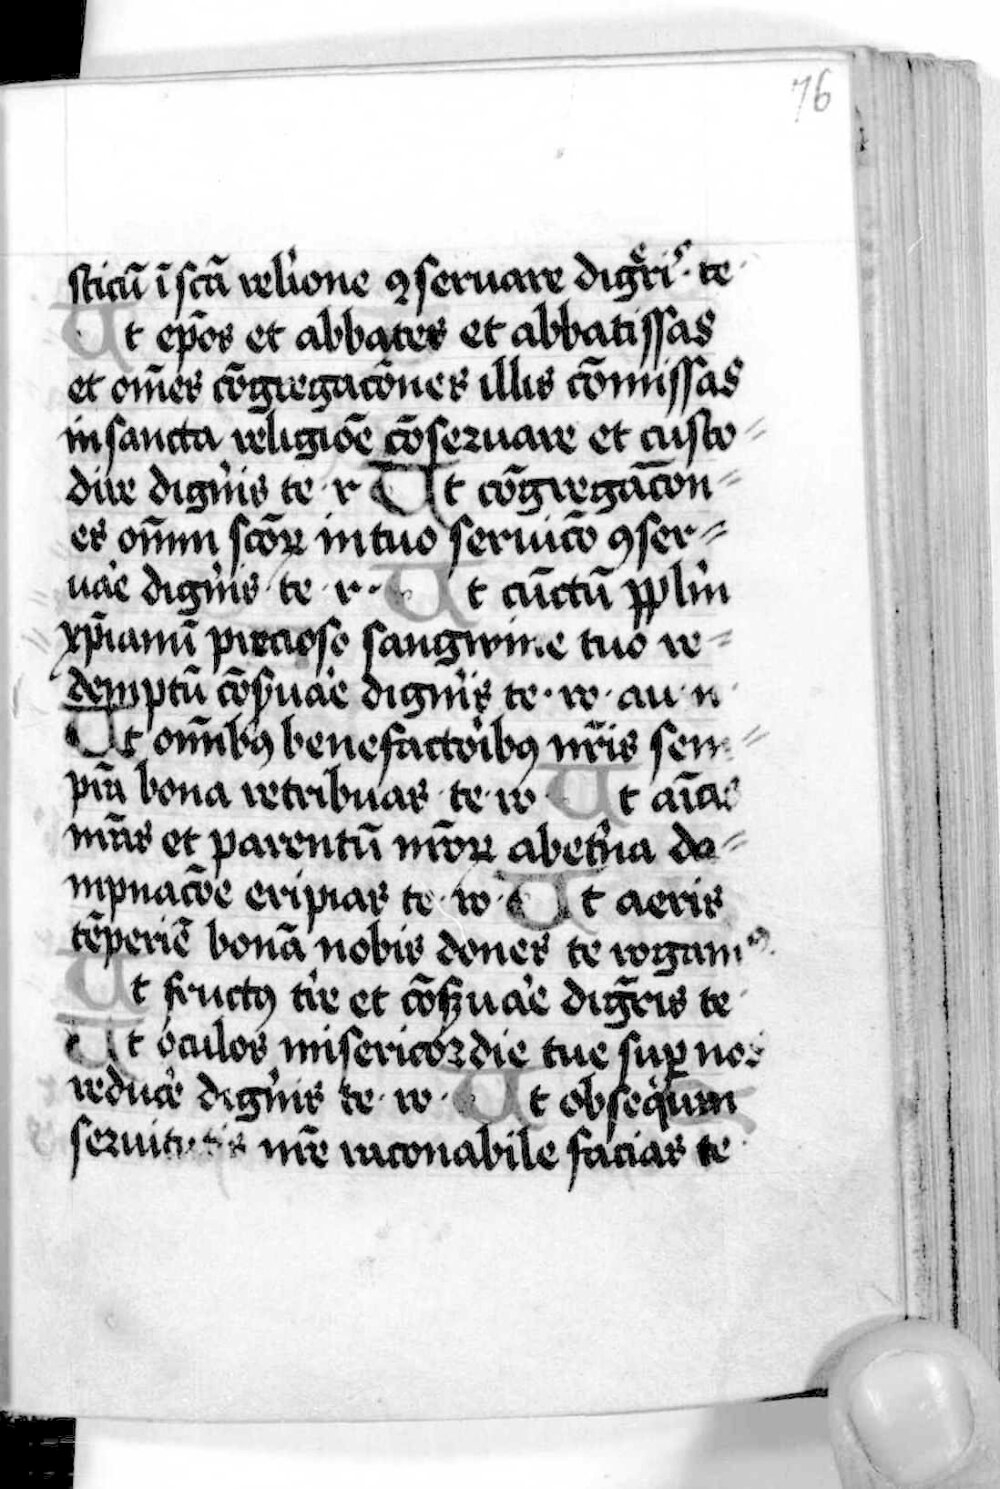 76
sticū ī scā reliōne ꝯseruare digꝛ̄is te
Ut ep̄os et abbates et abbatissas
et om̄es cōgregacōnes illis cōmissas
in sancta religiōe cōseruare et custo⸗
dire dignͥis te · r Ut cōgregacōn⸗
es om̄nī scōꝝ in tuo seruicō ꝯser⸗
uāe dignͥis · te · r · Ut cūctū ppl̄m
xp̄ianū precioso sanguine tuo re⸗
demptū cōsuāe dignͥis te · ro · au · n
Ut om̄ibꝰ benefactoribꝰ nr̄is sem⸗
pit̄a bona retribuas · te · ro Ut aīas
nr̄as et parentū nr̄oꝝ ab et̄na da⸗
mpnacōe eripias te · ro · Ut aeris
tēperiē bonā nobis dones te rogamꝰ
Ut fructꝰ tr̄e et cōsuāe digꝛ̄is te
Ut oculos misericordie tue suꝑ nos
reducē dignͥis te · ro · Ut obsequm̄
seruitutis nr̄e racionabile facias te